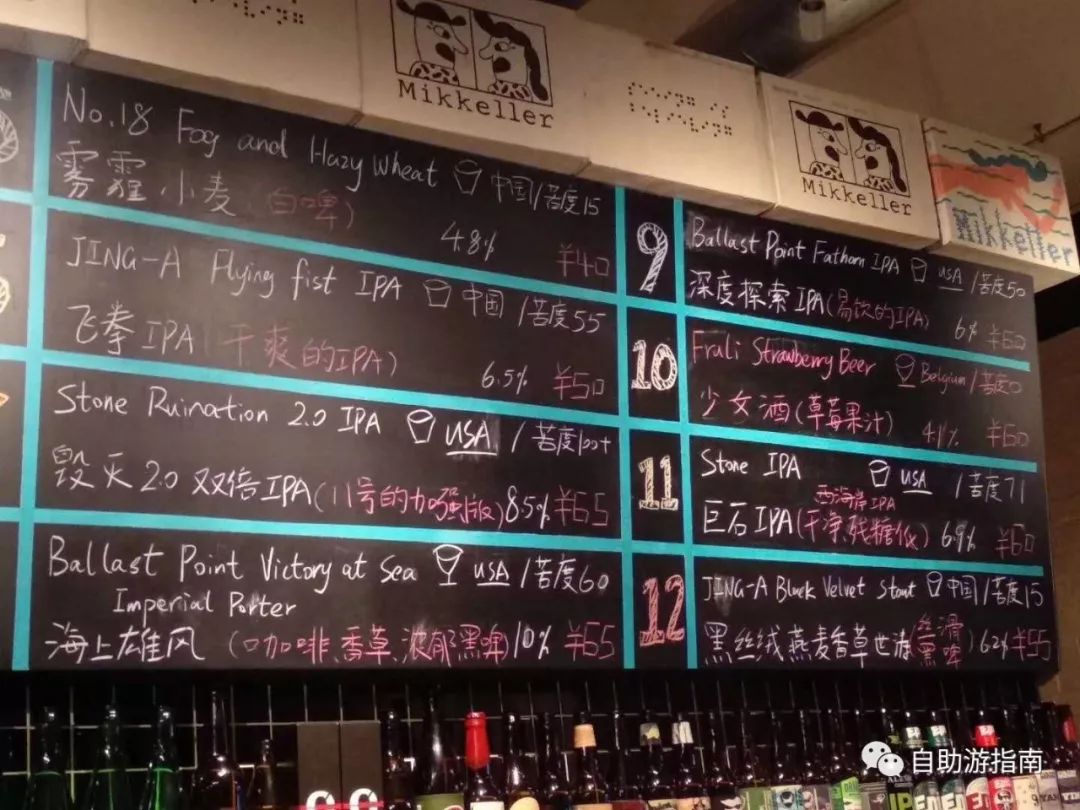 Mikkeller
Mikkeller
Mikkeller
No.18 Fog and Hazy Wheat 中国/苦度15
雾霾小麦(白啤)
4.8% ¥40
JING-A Flying fist IPA 中国/苦度55
飞拳IPA(干爽的IPA)
6.5% ¥50
Stone Ruination 2.0 IPA USA/苦度100+
毁灭2.0双倍IPA(11号的加强版)8.5% ¥65
Ballast Point Victory at Sea USA/苦度60
Imperial Porter
海上雄风(咖啡香草浓郁黑啤)10% ¥65
9
Ballast Point Fathom IPA USA/苦度50
深度探索IPA(易饮的IPA)
6% ¥60
10
Fruli Strawberry Beer Belgium/苦度0
少女酒(草莓果汁) 4.1% ¥60
11
Stone IPA USA/苦度71
西海岸IPA
巨石IPA(干净残糖低) 6.9% ¥60
12
JING-A Black Velvet Stout 中国/苦度15
黑丝绒燕麦香草世涛(丝滑黑啤)6.2% ¥55
自助游指南